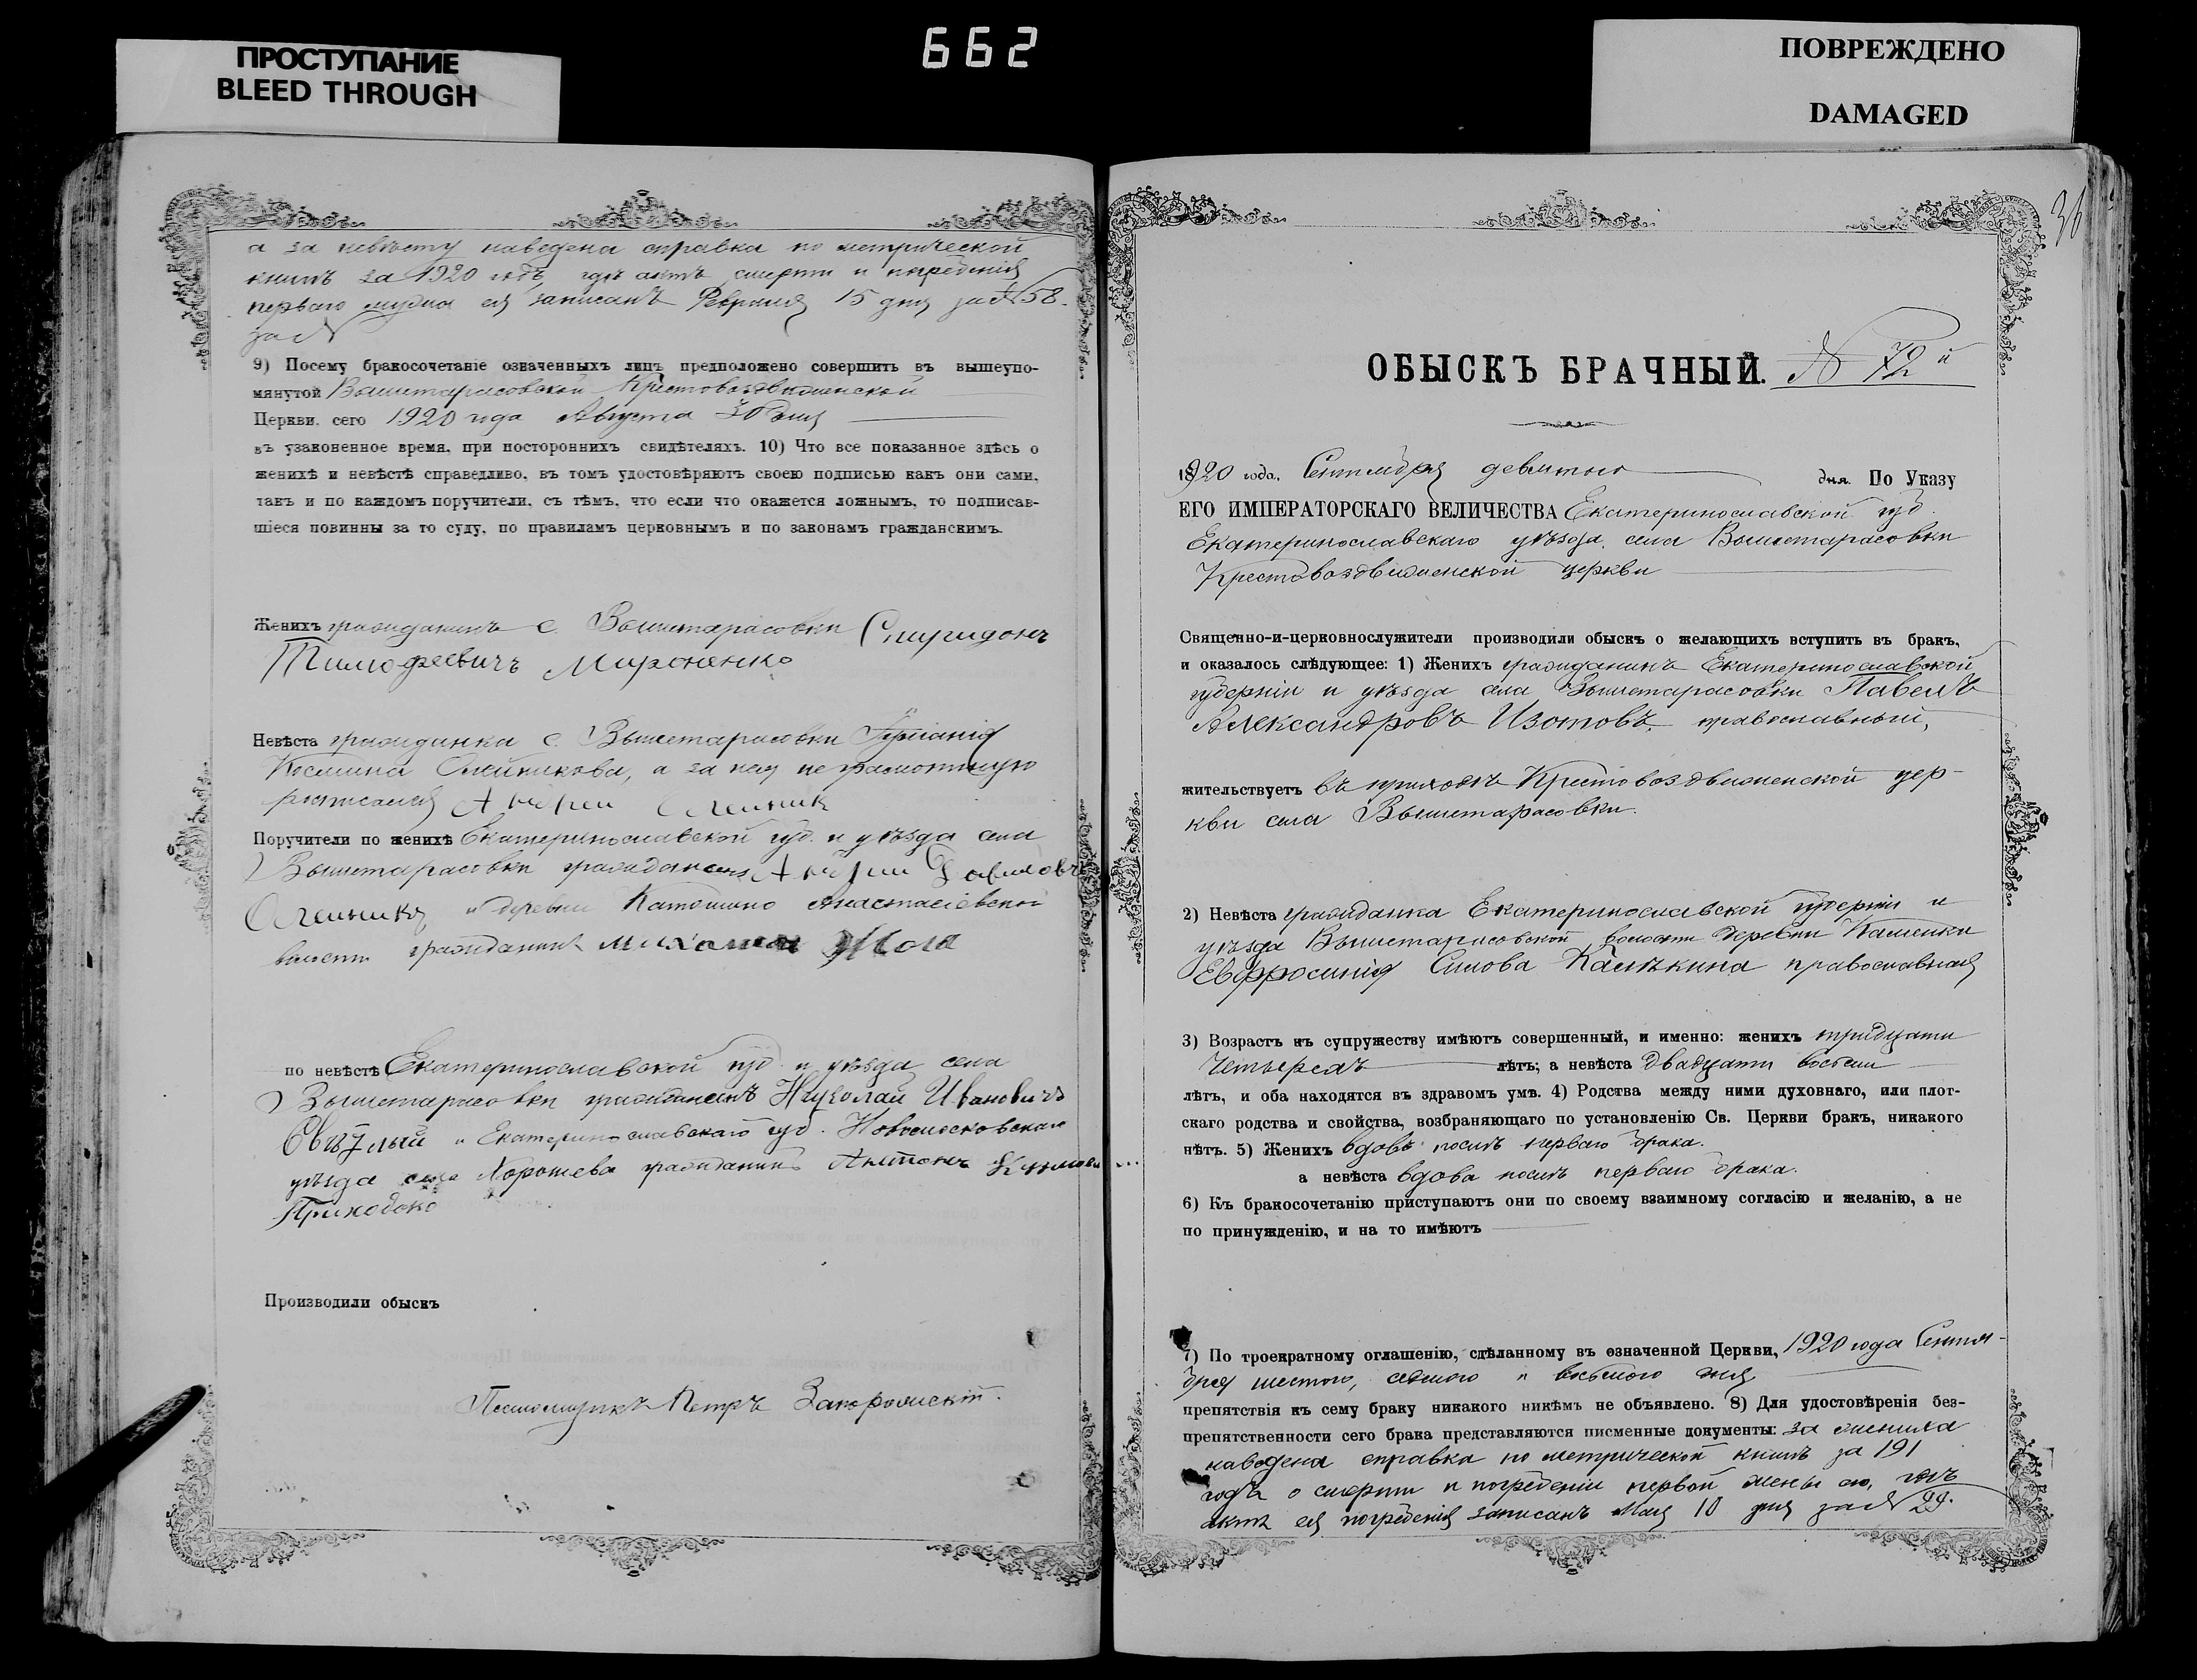 ПРОСТУПАНИЕ
BLEED THROUGH
662
ПОВРЕЖДЕНО
DAMAGED
а за невѣсту наведена справка по метрической
книгѣ за 1920 годъ, гдѣ актъ смерти и погребенія
перваго мужа ея записанъ Февраля 15 дня за № 58.
за №
9) Посему бракосочетаніе означенныхъ лицъ предположено совершить въ вышеупо-
мянутой Вышетарасовской Крестовоздвиженской
Церкви, сего 1920 года Августа 30 дня
въ узаконенное время, при постороннихъ свидѣтеляхъ. 10) Что все показанное здѣсь о
женихѣ и невѣстѣ справедливо, въ томъ удостовѣряютъ своею подписью какъ они сами,
такъ и по каждомъ поручители, съ тѣмъ, что если что окажется ложнымъ, то подписав-
шіеся повинны за то суду, по правиламъ церковнымъ и по законамъ гражданскимъ.
Женихъ гражданинъ с. Вышетарасовки Спиридонъ
Тимофеевичъ Мироненко
Невѣста гражданка с. Вышетарасовки
Космина Олейникова, а за нея неграмотную
росписался Андрей Олейник
Поручители по женихѣ Екатеринославской губ. и уѣзда села
Вышетарасовки гражданинъ Андрей
Олейникъ и деревни Анастасіевской
волости гражданинъ
по невѣстѣ Екатеринославской губ. и уѣзда села
Вышетарасовки гражданинъ Николай Ивановичъ
Свѣтлый и Екатеринославскаго губ. Новомосковскаго
уѣзда села Хорошева гражданинъ Антонъ
Приходько
Производили обыскъ
Псаломщикъ Петръ
36
ОБЫСКЪ БРАЧНЫЙ. № 72й
1920 года, Сентября девятаго дня. По Указу
ЕГО ИМПЕРАТОРСКАГО ВЕЛИЧЕСТВА Екатеринославской губ.
Екатеринославскаго уѣзда, села Вышетарасовки
Крестовоздвиженской церкви
Священно-и-церковнослужители производили обыскъ о желающихъ вступить въ бракъ,
и оказалось слѣдующее: 1) Женихъ гражданинъ Екатеринославской
губерніи и уѣзда села Вышетарасовки Павелъ
Александровъ Изотовъ, православный,
жительствуетъ въ приходѣ Крестовоздвиженской цер-
кви села Вышетарасовки.
2) Невѣста гражданка Екатеринославской губерніи и
уѣзда Вышетарасовской волости деревни Каменки
Евфросинія Симова Калѣкина православная
3) Возрастъ къ супружеству имѣютъ совершенный, и именно: женихъ тридцати
четырехъ лѣтъ; а невѣста двадцати восьми
лѣтъ, и оба находятся въ здравомъ умѣ. 4) Родства между ними духовнаго, или плот-
скаго родства и свойства, возбраняющаго по установленію Св. Церкви бракъ, никакого
нѣтъ. 5) Женихъ вдовъ послѣ перваго брака.
а невѣста вдова послѣ перваго брака.
6) Къ бракосочетанію приступаютъ они по своему взаимному согласію и желанію, а не
по принужденію, и на то имѣютъ
7) По троекратному оглашенію, сдѣланному въ означенной Церкви, 1920 года Сентя-
бря шестого, седьмого и восьмого дня
препятствія къ сему браку никакого никѣмъ не объявлено. 8) Для удостовѣренія без-
препятственности сего брака представляются писменные документы: за жениха
наведена справка по метрической книгѣ за 191
годъ о смерти и погребеніи первой жены его, гдѣ
актъ ея погребенія записанъ Мая 10 дня за № 24.